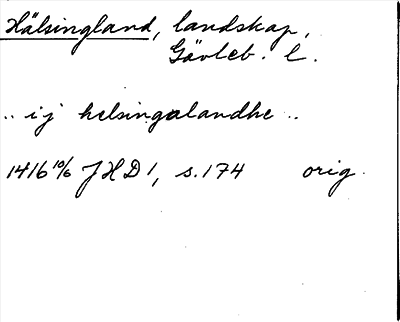 Hälsingland, landskap,
Gävleb. l.
.. i j helsingalandhe ..
1416 10/6 JHD 1, s. 174 orig.